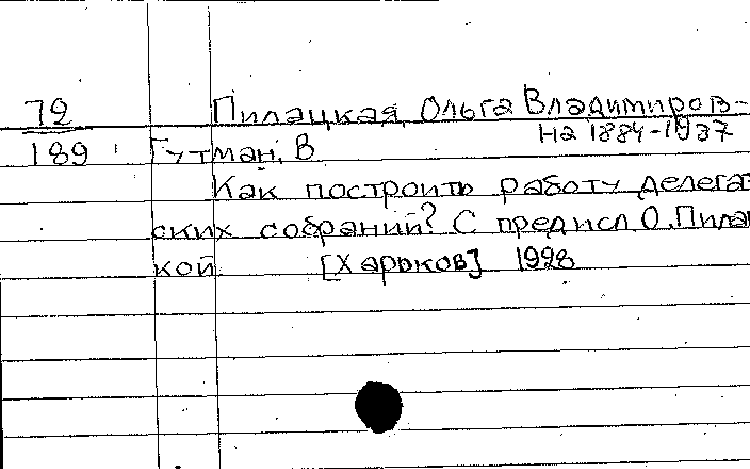 72 Пилацкая, Ольга Владимиров-
на 1884-1937
189 Гутман, В.
Как построить работу делегат
ских собраний? С предисл. О. Пилац
кой. [Харьков] 1928